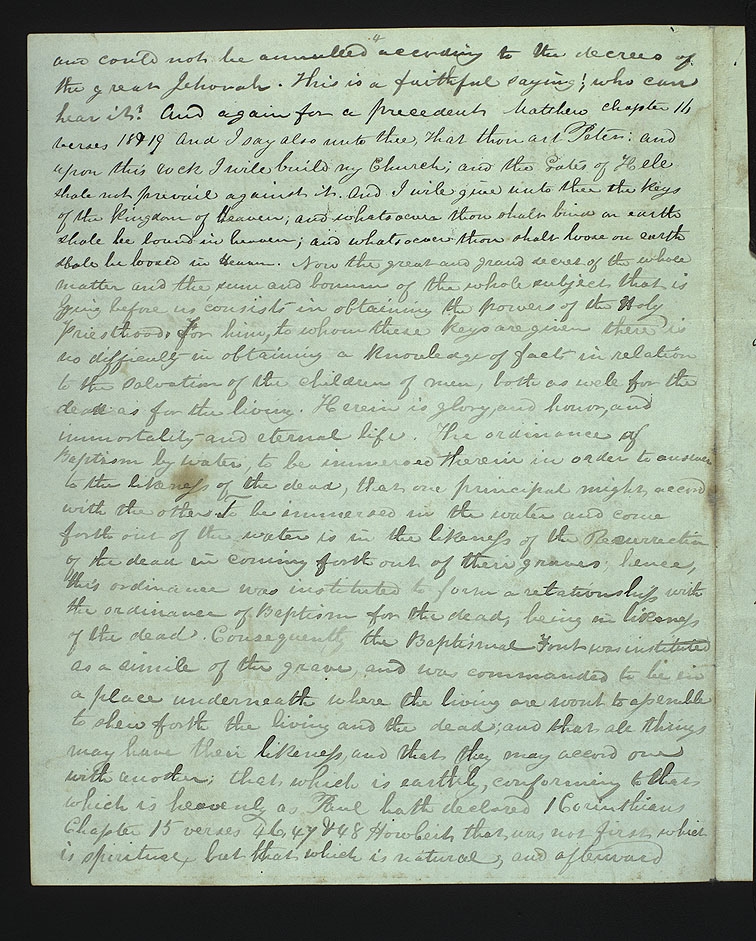 4
and could not be annulled according to the decrees of
the great Jehovah. This is a faithful saying! who can
hear it? And again for a precedent Matthew chapter 16
verses 18 & 19 And I say also unto thee, That thou art Peter: and
upon this rock I will build my Church; and the Gates of Hell
shall not prevail against it. And I will give unto thee the Keys
of the Kingdom of Heaven; and whatsoever thou shalt bind on earth
shall be bound in heaven; and whatsoever thou shalt loose on earth
shall be loosed in Heaven. Now the great and grand secret of the whole
matter and the sum and bonum of the whole subject that is
lying before us consists in obtaining the powers of the Holy
Priesthood. For him, to whom these Keys are given there is
no difficulty in obtaining a Knowledge of facts in relation
to the Salvation of the children of men, both as well for the
dead as for the living. Herein is glory, and honor, and
immortality and eternal life. The ordinance of
Baptism by water, to be immersed therein in order to answer
to the likeness of the dead, that one principal might accord
with the other. To be immersed in the water and come
forth out of the water is in the likeness of the Resurrection
of the dead in coming forth out of their graves; hence,
this ordinance was instituted to form a relationship with
the ordinance of Baptism for the dead, being in likeness
of the dead. Consequently the Baptismal Font was instituted
as a simile of the grave, and was commanded to be in
a place underneath where the living are wont to assemble
to shew forth the living and the dead; and that all things
may have their likeness, and that they may accord one
with another; that which is earthly, conforming to that
which is heavenly as Paul hath declared 1 Corinthians
Chapter 15 verses 46, 47 & 48 Howbeit that was not first which
is spiritual, but that which is natural; and afterward